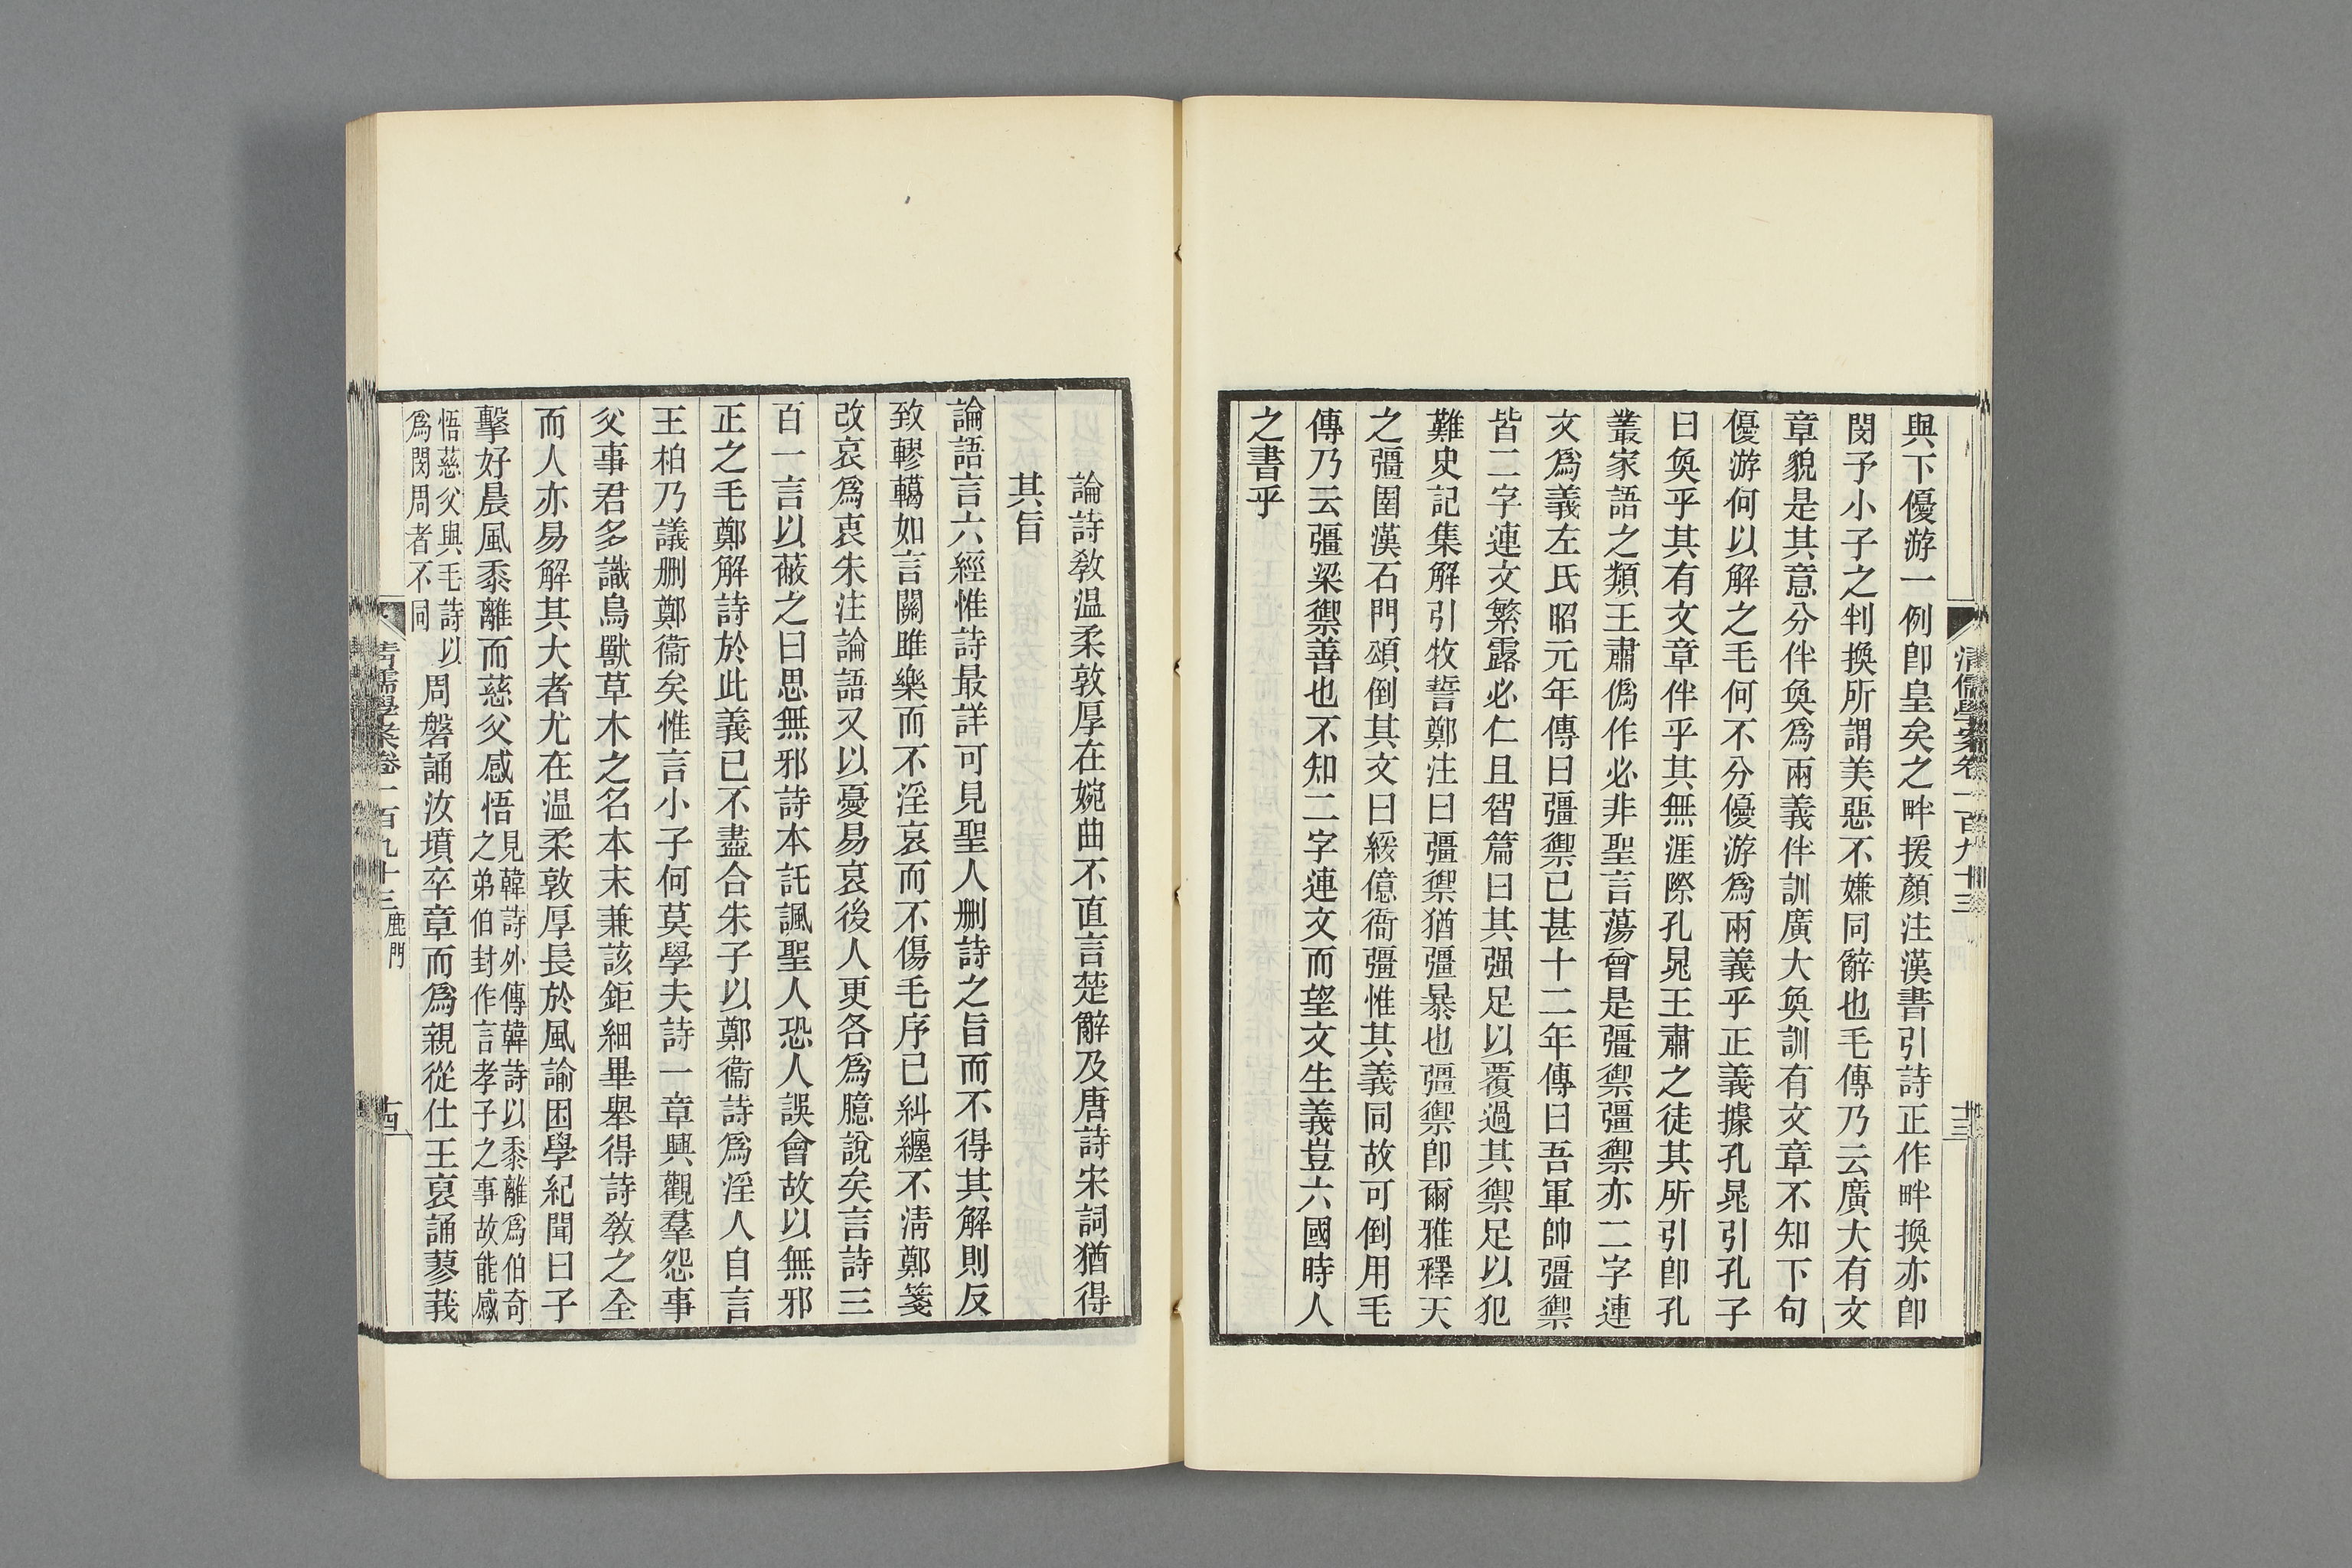 與下優游一例卽皇矣之畔援顏注漢書引詩正作畔換亦卽
閔予小子之判換所謂美惡不嫌同辭也毛傳乃云廣大有文
章貌是其意分伴奐爲兩義伴訓廣大奐訓有文章不知下句
優游何以解之毛何不分優游爲兩義乎正義據孔晁引孔子
曰奐乎其有文章伴乎其無涯際孔晁王肅之徒其所引卽孔
叢家語之類王肅僞作必非聖言蕩曾是彊禦彊禦亦二字連
文爲義左氏昭元年傳曰彊禦已甚十二年傳曰吾軍帥彊禦
皆二字連文繁露必仁且智篇曰其强足以覆過其禦足以犯
難史記集解引牧誓鄭注曰彊禦猶彊暴也彊禦卽爾雅釋天
之彊圉漢石門頌倒其文曰綏億衙彊惟其義同故可倒用毛
傳乃云彊梁禦善也不知二字連文而望文生義豈六國時人
之書乎
清儒學案卷一百九十三
十三
論詩敎溫柔敦厚在婉曲不直言楚辭及唐詩宋詞猶得
其旨
論語言六經惟詩最詳可見聖人刪詩之旨而不得其解則反
致轇轕如言關雎樂而不淫哀而不傷毛序已糾纏不淸鄭箋
改哀爲衷朱注論語又以憂易哀後人更各爲臆說矣言詩三
百一言以蔽之曰思無邪詩本託諷聖人恐人誤會故以無邪
正之毛鄭解詩於此義已不盡合朱子以鄭衞詩爲淫人自言
王柏乃議刪鄭衞矣惟言小子何莫學夫詩一章興觀羣怨事
父事君多識鳥獸草木之名本末兼該鉅細畢舉得詩敎之全
而人亦易解其大者尤在溫柔敦厚長於風諭困學紀聞曰子
擊好晨風黍離而慈父感悟見韓詩外傳韓詩以黍離爲伯奇
之弟伯封作言孝子之事故能感
悟慈父與毛詩以
爲閔周者不同周磐誦汝墳卒章而爲親從仕王裒誦蓼莪
清儒學案卷一百九十三 鹿門
十四